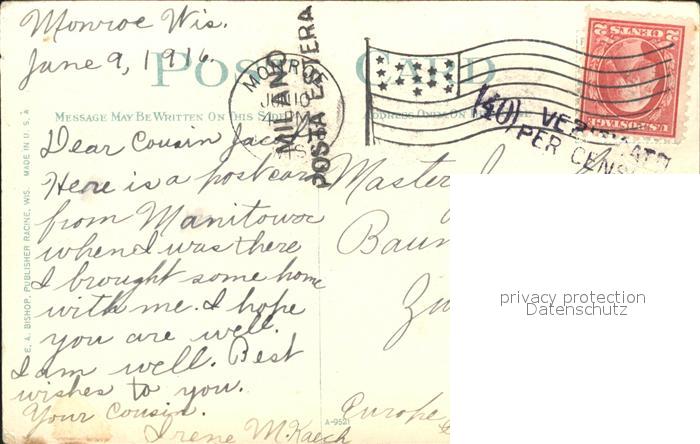 Monroe Wis.
June 9, 1916.
POST CARD
MESSAGE MAY BE WRITTEN ON THIS SIDE
ADDRESS ONLY ON
MONROE
JUN 10
MILANO
POSTA ESTERA
(40) VERIFICATO
PER CENS
2 CENTS 2
U.S. POSTAGE
Dear Cousin
Here is a postcard
from Manitowoc
when I was there
I brought some home
with me. I hope
you are well.
I am well. Best
wishes to you.
Your Cousin.
Irene M. Kaech
Master
Baum
Zu
Europe
privacy protection
Datenschutz
A-9521
E. A. BISHOP, PUBLISHER RACINE, WIS. MADE IN U.S.A